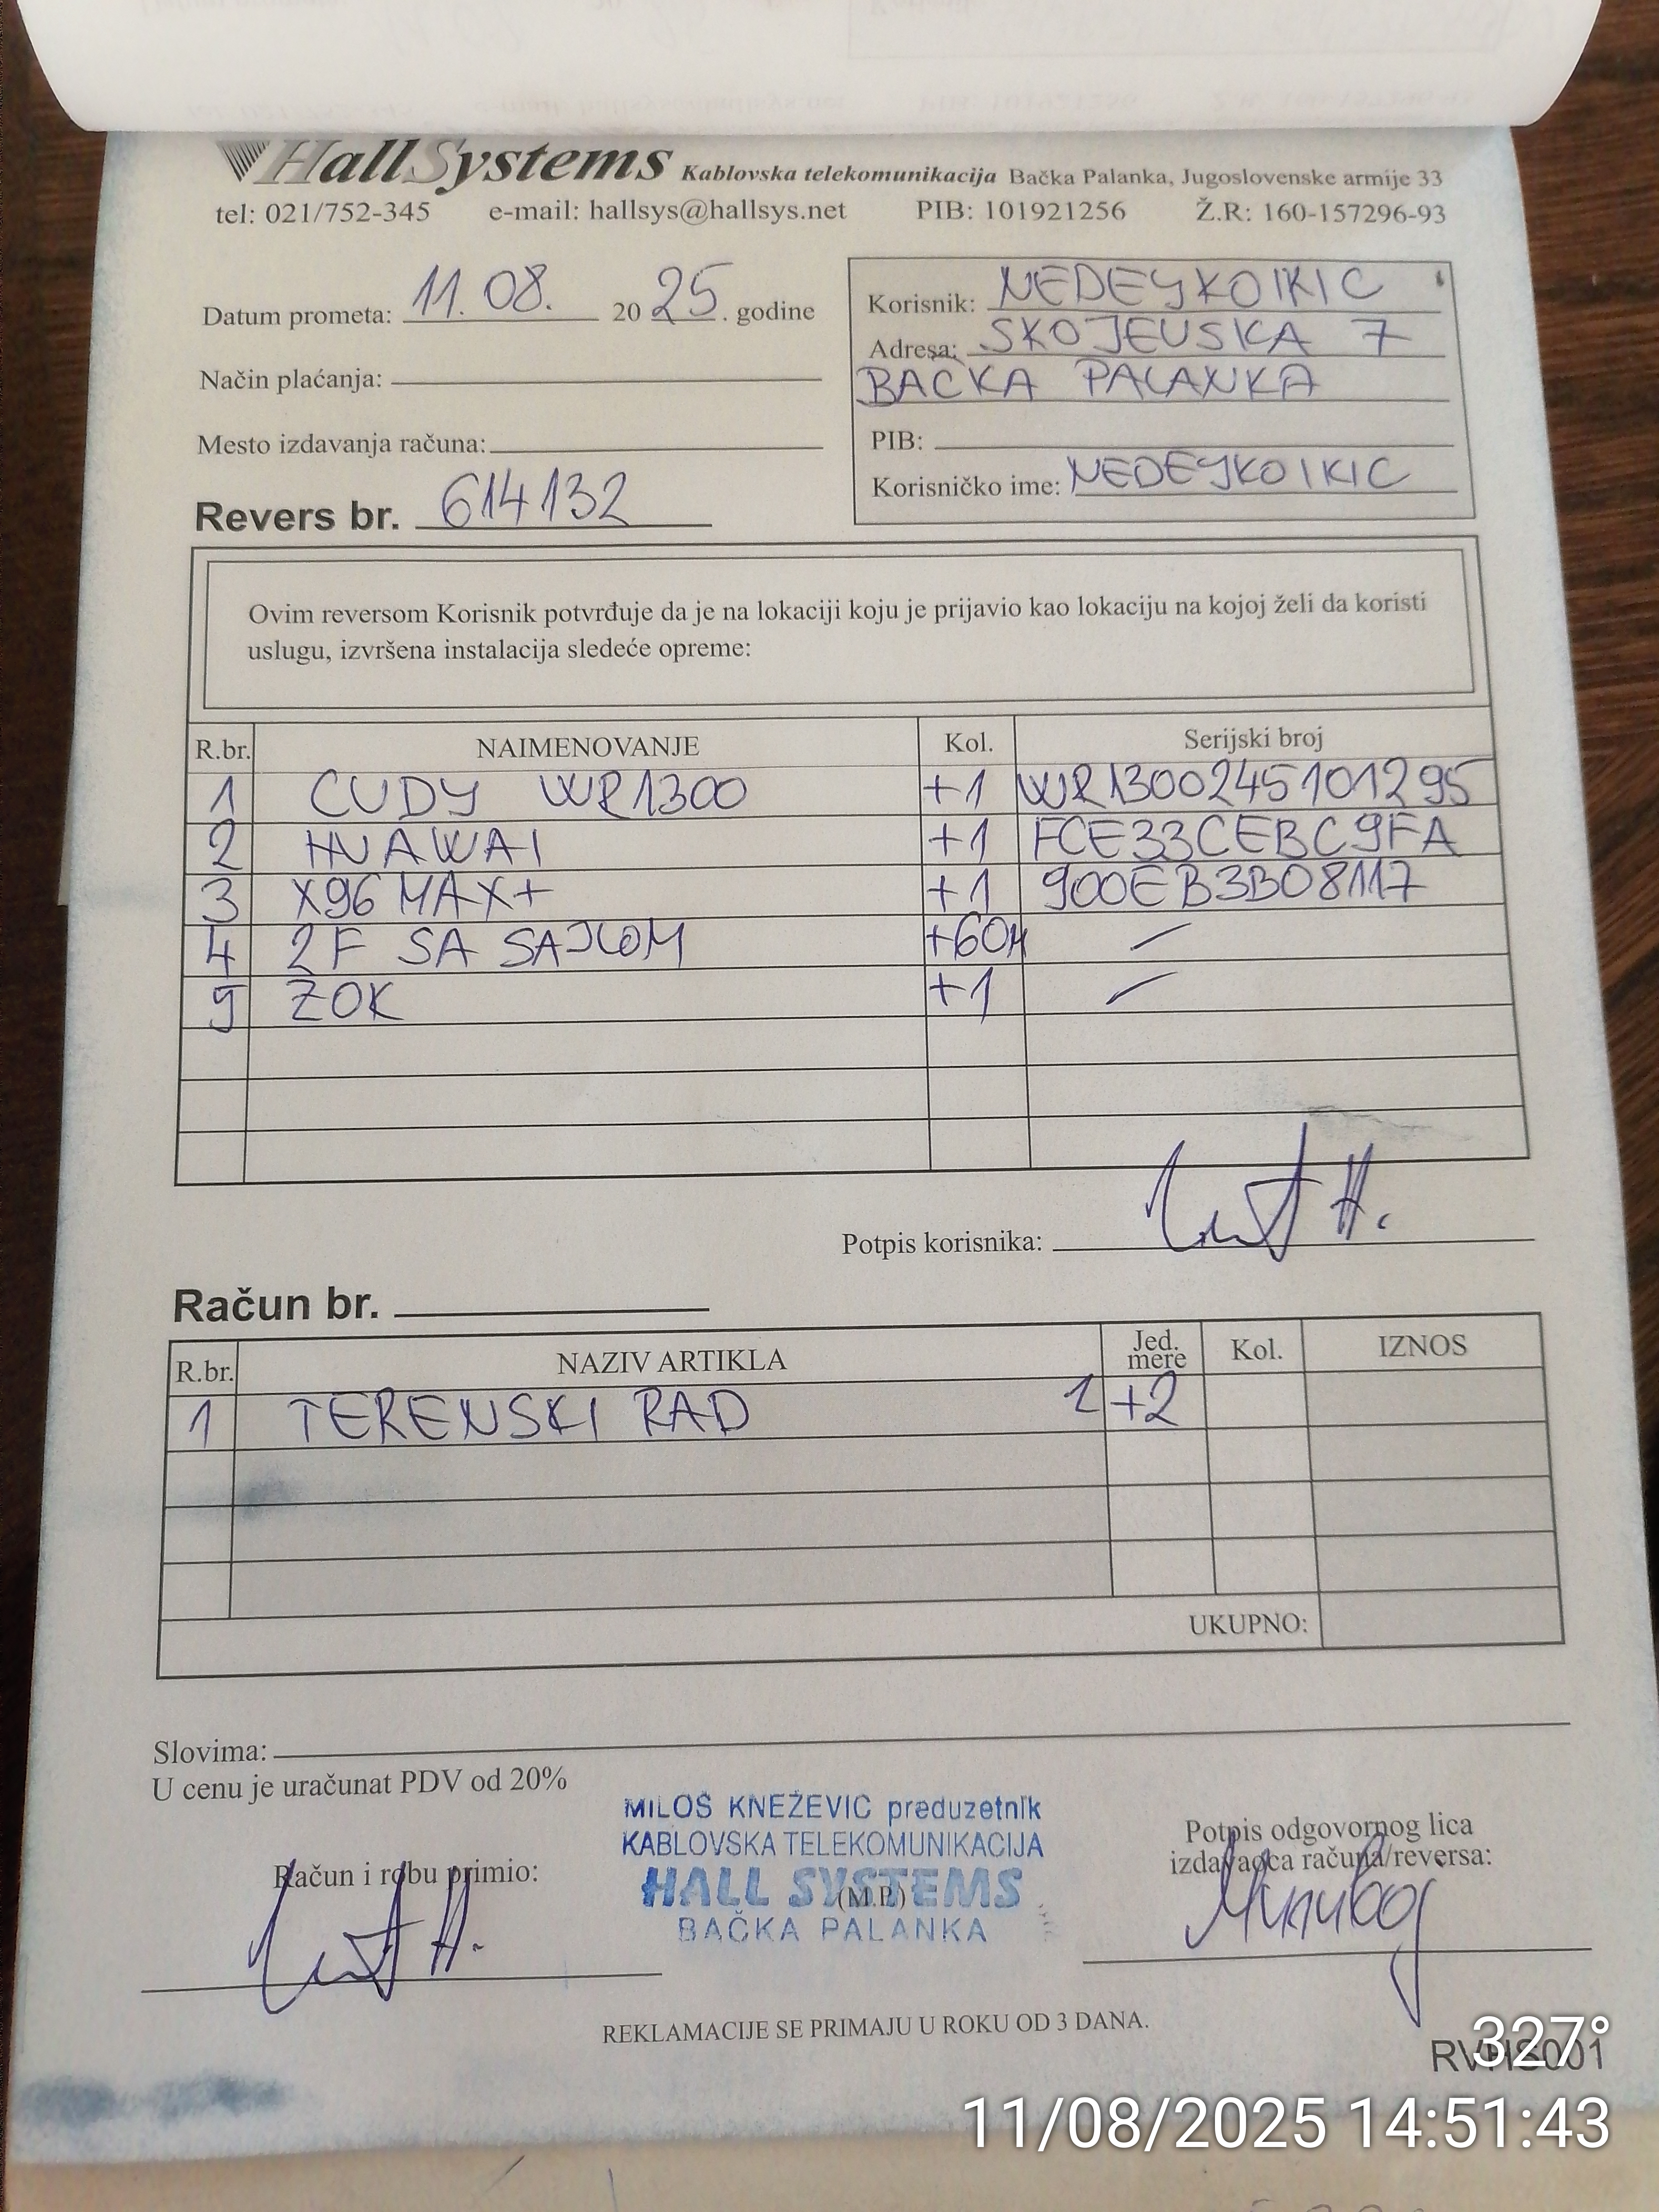 HallSystems Kablovska telekomunikacija Bačka Palanka, Jugoslovenske armije 33
tel: 021/752-345 e-mail: hallsys@hallsys.net PIB: 101921256 Ž.R: 160-157296-93
Datum prometa: 11.08. 2025. godine
Način plaćanja:
Mesto izdavanja računa:
Revers br. 614132
Korisnik: NEDEYKOIKIC
Adresa: SKOJEVSKA 7
BACKA PALANKA
PIB:
Korisničko ime: NEDEYKOIKIC
Ovim reversom Korisnik potvrđuje da je na lokaciji koju je prijavio kao lokaciju na kojoj želi da koristi
uslugu, izvršena instalacija sledeće opreme:
R.br. NAIMENOVANJE Kol. Serijski broj
1 CUDY WR1300 +1 WR1300245101295
2 HUAWAI +1 FCE33CEBC9FA
3 X96 MAX+ +1 900EB3B08117
4 2F SA SAJLOM +60M –
5 ZOK +1 –
Potpis korisnika:
Račun br.
R.br. NAZIV ARTIKLA Jed. mere Kol. IZNOS
1 TERENSKI RAD 1 +2
UKUPNO:
Slovima:
U cenu je uračunat PDV od 20%
MILOŠ KNEŽEVIĆ preduzetnik
KABLOVSKA TELEKOMUNIKACIJA
HALL SYSTEMS
(M.P.)
BAČKA PALANKA
Račun i robu primio:
Potpis odgovornog lica
izdavaoca računa/reversa:
REKLAMACIJE SE PRIMAJU U ROKU OD 3 DANA.
RVHS001
327°
11/08/2025 14:51:43